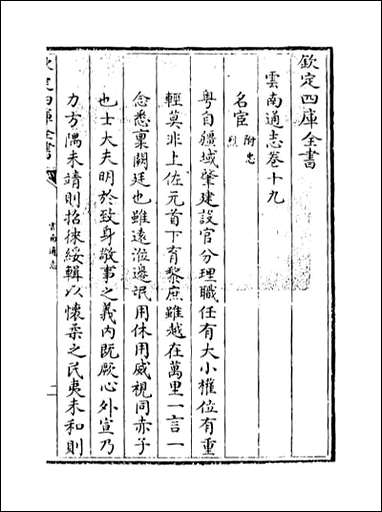 欽定四庫全書
雲南通志卷十九
名宦 附忠烈
粤自疆域肇建設官分理職任有大小權位有重
輕莫非上佐元首下育黎庶雖越在萬里一言一
念悉稟闕廷也雖遠涖邊氓用休用威視同赤子
也士大夫明於致身敬事之義内既厥心外宣乃
力方隅未靖則招徠綏輯以懷柔之民夷未和則
欽定四庫全書
雲南通志